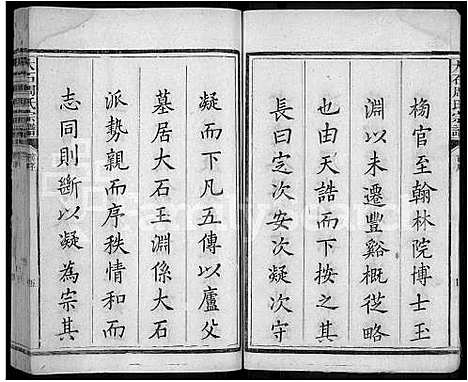 楊官至翰林院博士玉
淵以未遷豐谿概從略
也由天誥而下按之其
長曰定次安次凝次守
凝而下凡五傳以廬父
墓居大石王淵係大石
派勢親而序秩情和而
志同則斷以凝為宗其
大石周氏宗譜